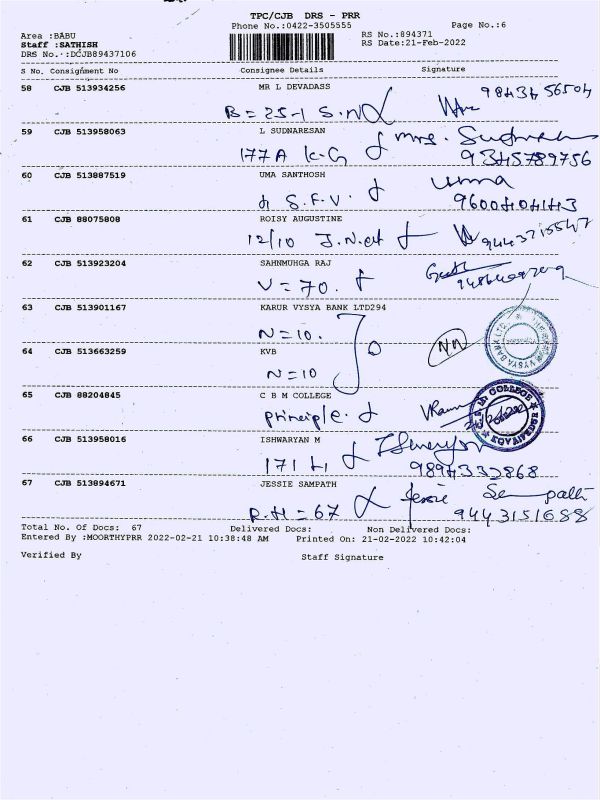 TPC/CJB DRS - PRR
Phone No.:0422-3505555 Page No.:6
Area :BABU RS No.:894371
Staff :SATHISH RS Date:21-Feb-2022
DRS No.:DCJB89437106
S No. Consignment No Consignee Details Signature
58 CJB 513934256 MR L DEVADASS
B=25-1 S.N
59 CJB 513958063 L SUDNARESAN Mrs.
177A K-G 9345789756
60 CJB 513887519 UMA SANTHOSH uma
S.F.V. 9600404143
61 CJB 88075808 ROISY AUGUSTINE
12/10 J.N. 9443715547
62 CJB 513923204 SAHNMUHGA RAJ
V=70.
63 CJB 513901167 KARUR VYSYA BANK LTD294
N=10.
64 CJB 513663259 KVB
N=10
VYSYA BANK LTD.
65 CJB 88204845 C B M COLLEGE
principle.
COLLEGE
66 CJB 513958016 ISHWARYAN M
171 9894332868
67 CJB 513894671 JESSIE SAMPATH Jessie
R.H=67 9443151688
Total No. Of Docs: 67 Delivered Docs: Non Delivered Docs:
Entered By :MOORTHYPRR 2022-02-21 10:38:48 AM Printed On: 21-02-2022 10:42:04
Verified By Staff Signature